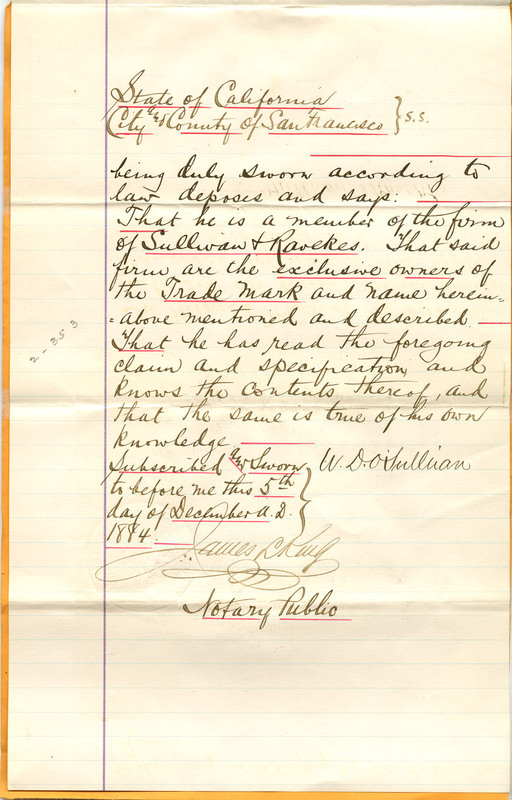 State of California
City and County of San Francisco } S.S.
being duly sworn according to
law deposes and says:
That he is a member of the firm
of Sullivan & Ravekes. That said
firm are the exclusive owners of
the Trade Mark and name herein=
=above mentioned and described.
That he has read the foregoing
claim and specification, and
knows the contents thereof, and
that the same is true of his own
knowledge
Subscribed and Sworn W. D. O'Sullivan
to before me this 5th
day of December A.D.
1884.
James L King
Notary Public
2-353